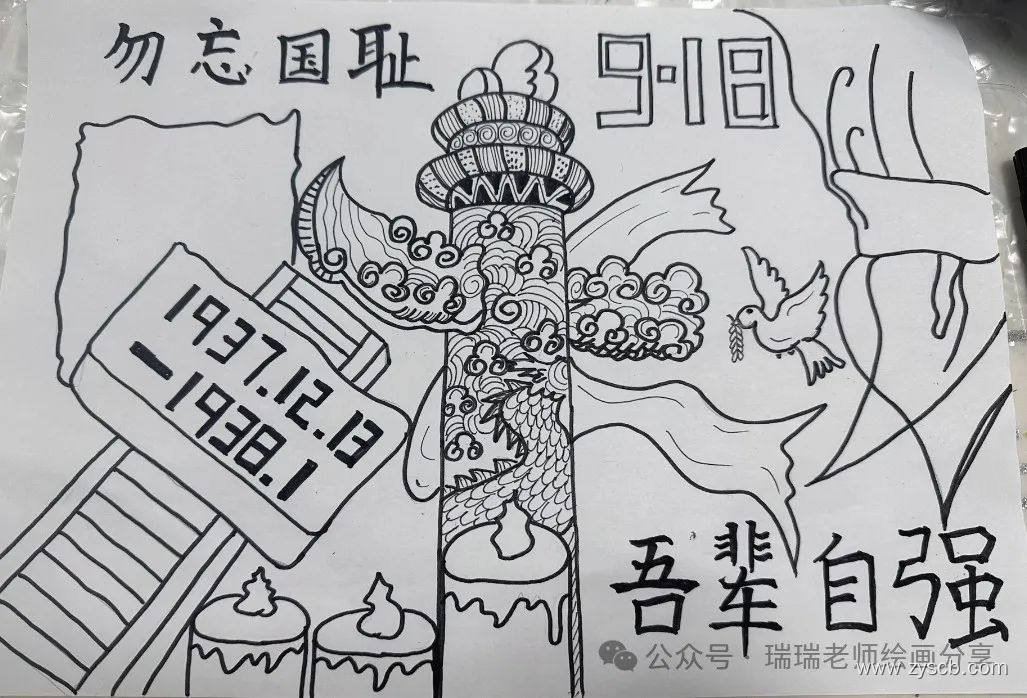 勿忘国耻
9·18
1937.12.13
-1938.1
吾辈自强
公众号·瑞瑞老师绘画分享
www.zyscb.com